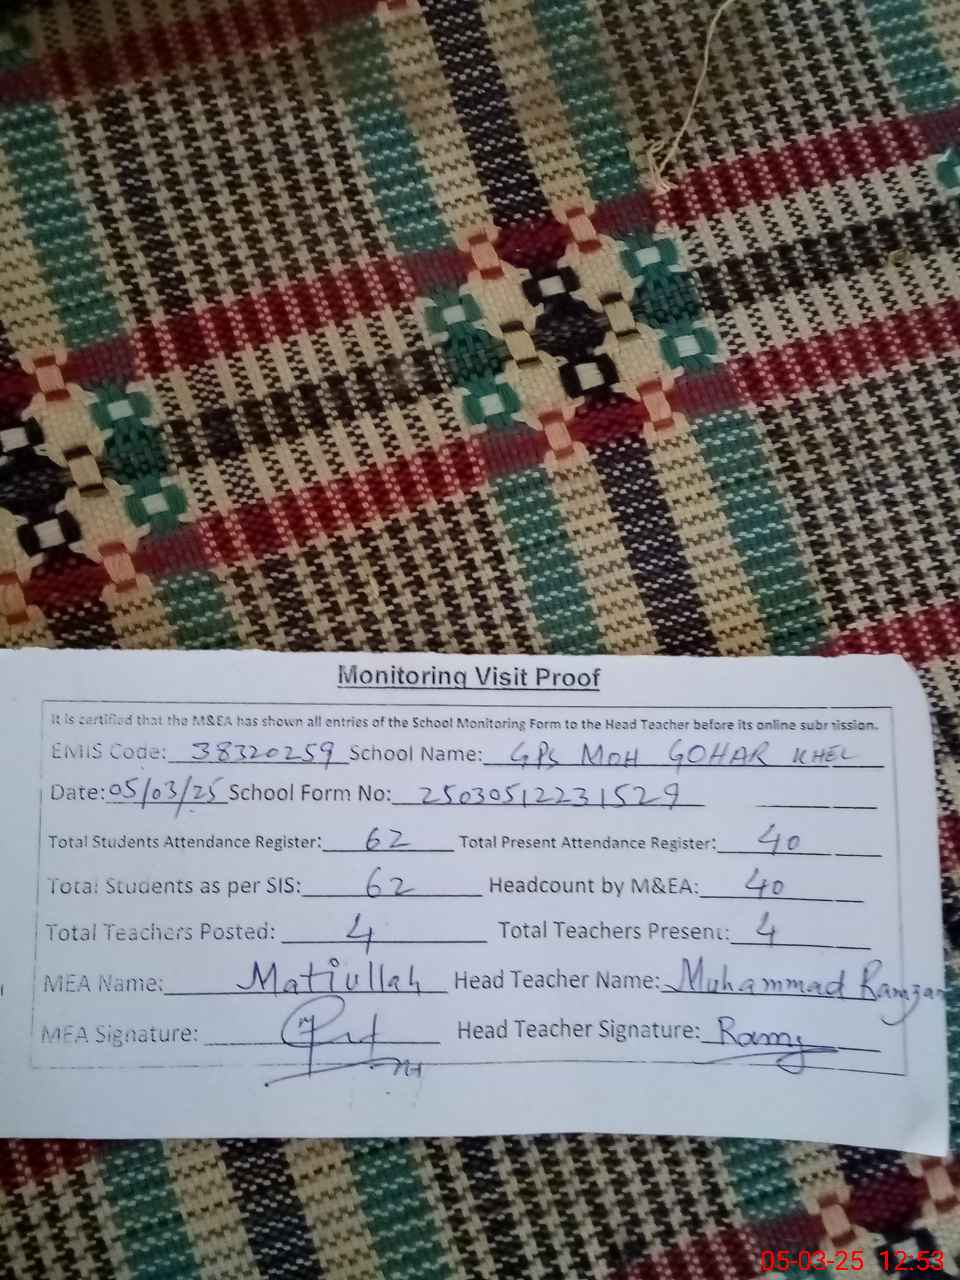 Monitoring Visit Proof
It is certified that the M&EA has shown all entries of the School Monitoring Form to the Head Teacher before its online submission.
EMIS Code: 38320259 School Name: GPS MOH GOHAR KHEL
Date: 05/03/25 School Form No: 25030512231529
Total Students Attendance Register: 62 Total Present Attendance Register: 40
Total Students as per SIS: 62 Headcount by M&EA: 40
Total Teachers Posted: 4 Total Teachers Present: 4
MEA Name: Matiullah Head Teacher Name: Muhammad Ramzan
MEA Signature: Head Teacher Signature: Ramz
05-03-25 12:53